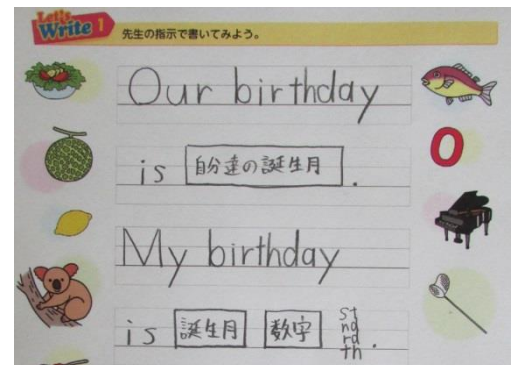 Let's Write 1 先生の指示で書いてみよう。
Our birthday
is 自分達の誕生月 .
My birthday
is 誕生月 数字 st nd rd th .
O